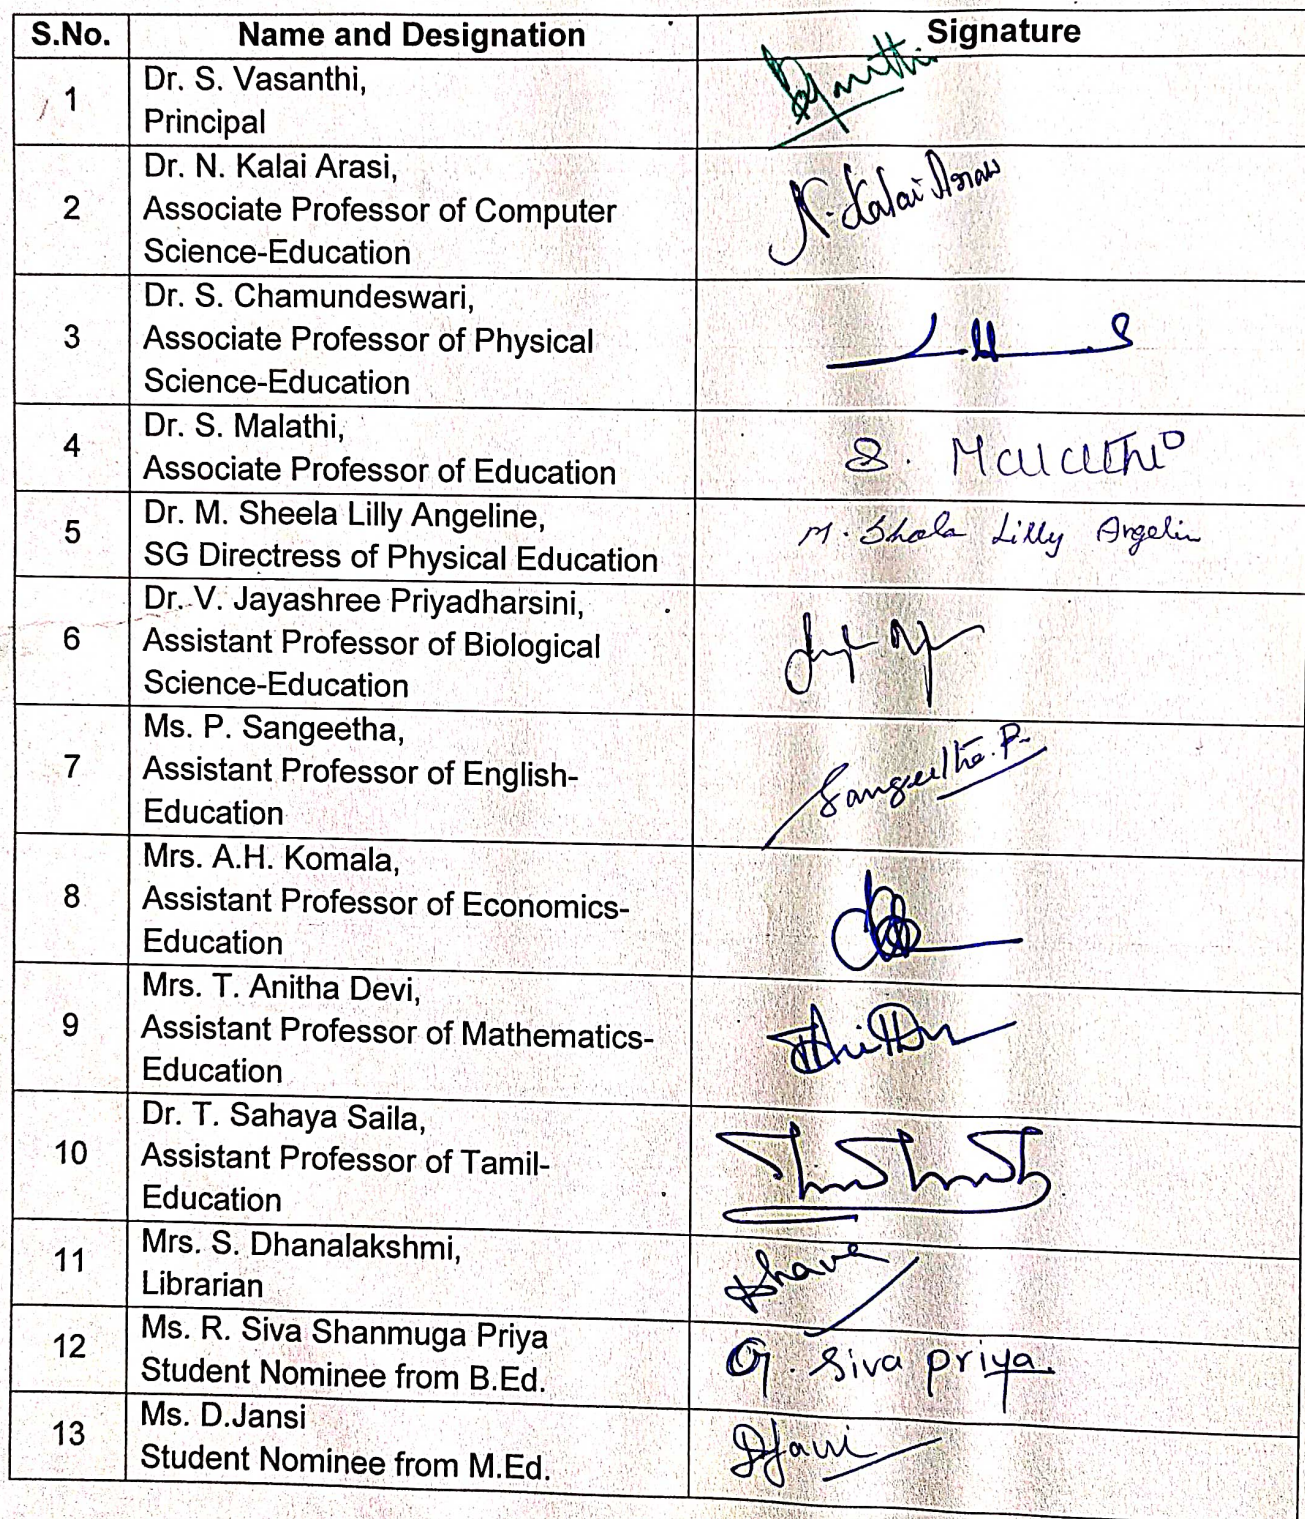 S.No. Name and Designation Signature
1
Dr. S. Vasanthi,
Principal
2
Dr. N. Kalai Arasi,
Associate Professor of Computer
Science-Education
N. Kalai Arasi
3
Dr. S. Chamundeswari,
Associate Professor of Physical
Science-Education
4
Dr. S. Malathi,
Associate Professor of Education
S. Malathi
5
Dr. M. Sheela Lilly Angeline,
SG Directress of Physical Education
M. Sheela Lilly Angelin
6
Dr. V. Jayashree Priyadharsini,
Assistant Professor of Biological
Science-Education
7
Ms. P. Sangeetha,
Assistant Professor of English-
Education
Sangeetha. P.
8
Mrs. A.H. Komala,
Assistant Professor of Economics-
Education
9
Mrs. T. Anitha Devi,
Assistant Professor of Mathematics-
Education
10
Dr. T. Sahaya Saila,
Assistant Professor of Tamil-
Education
11
Mrs. S. Dhanalakshmi,
Librarian
12
Ms. R. Siva Shanmuga Priya
Student Nominee from B.Ed.
Siva priya.
13
Ms. D.Jansi
Student Nominee from M.Ed.